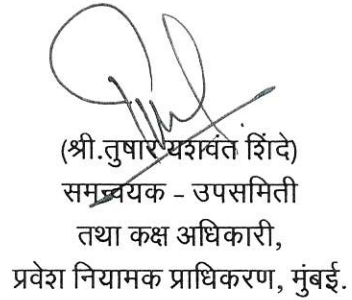 (श्री.तुषार यशवंत शिंदे)
समन्वयक – उपसमिती
तथा कक्ष अधिकारी,
प्रवेश नियामक प्राधिकरण, मुंबई.